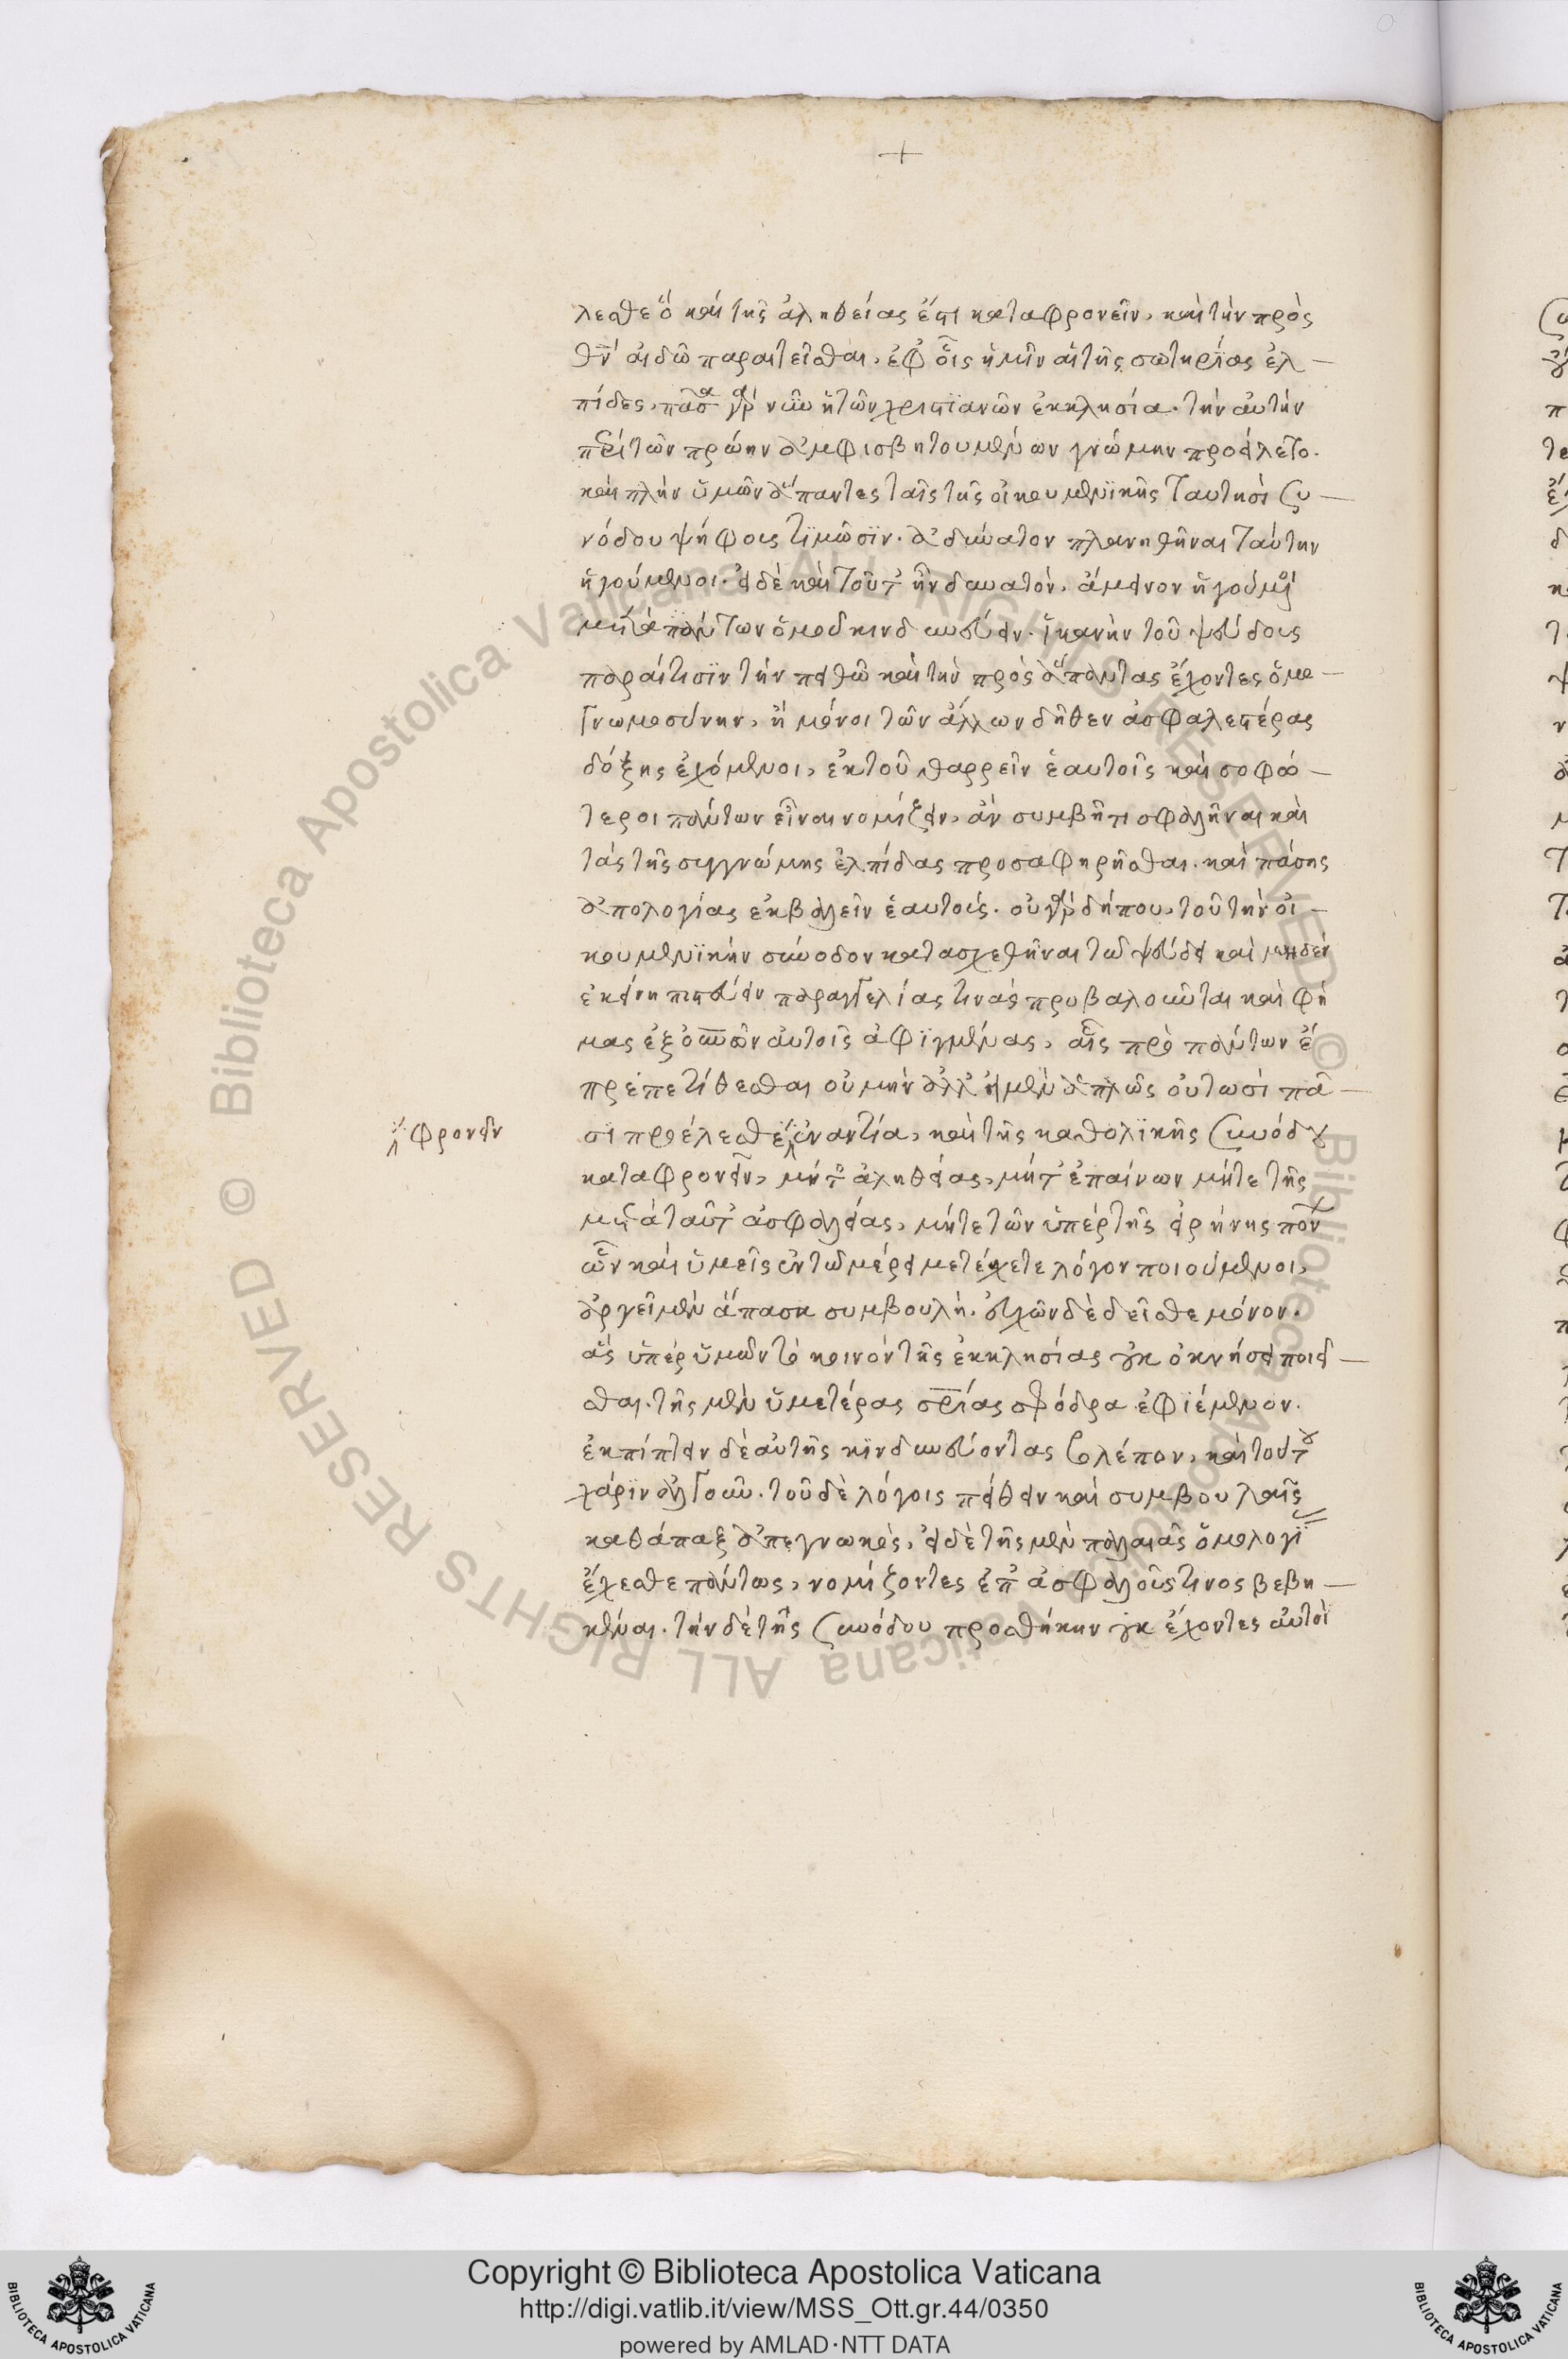 +
λεσθε ὅ καὶ τῆς ἀληθείας ἐστὶ καταφρονεῖν, καὶ τὴν πρὸς
θν´ αἰδῶ παραιτεῖσθαι, ἐφ' οἷς ἡμῖν αἱ τῆς σωτηρίας ἐλ-
πίδες, πᾶσα γὰρ νῦν ἡ τῶν χριστϊανῶν ἐκκλησία. τὴν αὐτὴν
περὶ τῶν πρώην ἀμφισβητουμένων γνώμην προείλετο.
καὶ πλὴν ὑμῶν ἅπαντες ταῖς τῆς οἰκουμενϊκῆς ταυτησὶ συ-
νόδου ψήφοις τϊμῶσϊν. ἀδύνατον πλανηθῆναι ταύτην
ἡγούμενοι. εἰ δὲ καὶ τοῦτ' ἦν δυνατὸν, ἄμεινον ἡγούμενοι
μετὰ πάντων ὁμοῦ κινδυνεύειν. ἱκανὴν τοῦ ψεύδους
παραίτισϊν τὴν πειθὼ καὶ τὴν πρὸς ἅπαντας ἔχοντες ὁμο-
γνωμοσύνην, ἢ μόνοι τῶν ἄλλων δῆθεν ἀσφαλεστέρας
δόξης ἐχόμενοι, ἐκ τοῦ θαρρεῖν ἑαυτοῖς καὶ σοφώ-
τεροι πάντων εἶναι νομίζειν, ἄν συμβῇ τι σφαλῆναι καὶ
τὰς τῆς συγγνώμης ἐλπίδας προσαφηρῆσθαι. καὶ πάσης
ἀπολογίας ἐκβαλεῖν ἑαυτούς. οὐ γὰρ δήπου, τοῦ τὴν οἰ-
κουμενϊκὴν σύνοδον κατασχεθῆναι τῶ ψεύδει καὶ μηδὲν
ἐκείνη πιστεύειν παραγγελίας τινὰς προβαλοῦνται καὶ φή
μας ἐξ οὐνῶν αὐτοῖς ἀφϊγμένας, αἷς πρὸ πάντων ἔ
πρέπε τίθεσθαι οὐ μὴν ἀλλ' εἰ μὲν ἁπλῶς οὑτωσὶ πᾶ-
σϊ προέλεσθε ἐναντία, καὶ τῆς καθολϊκῆς συνόδου
φρονεῖν
καταφρονεῖν, μήτ' ἀληθείας, μήτ' ἐπαίνων μήτε τῆς
μετὰ ταῦτ' ἀσφαλείας, μήτε τῶν ὑπὲρ τῆς εἰρήνης πόνων
ὧν καὶ ὑμεῖς ἐν τῶ μέρει μετέχετε λόγον ποιούμενοι,
ἀργεῖ μὲν ἅπασα συμβουλή. εὐχῶν δὲ δεῖσθε μόνον.
ἃς ὑπὲρ ὑμῶν τὸ κοινὸν τῆς ἐκκλησίας οὐκ ὀκνήσει ποιεῖ-
σθαι. τῆς μὲν ὑμετέρας σρίας σφόδρα ἐφϊέμενον.
ἐκπίπτειν δὲ αὐτῆς κϊνδυνεύοντας βλέπον, καὶ τούτου
χάρϊν ἀλγοῦν. τοῦ δὲ λόγοις πείθειν καὶ συμβουλαῖς
καθάπαξ ἀπεγνωκὸς, εἰ δὲ τῆς μὲν παλαιᾶς ὁμολογίας
ἔχεσθε πάντως, νομίζοντες ἐπ' ἀσφαλοῦς τινος βεβη-
κέναι. τὴν δὲ τῆς συνόδου προσθήκην οὐκ ἔχοντες αὐτοὶ
Copyright © Biblioteca Apostolica Vaticana
http://digi.vatlib.it/view/MSS_Ott.gr.44/0350
powered by AMLAD·NTT DATA